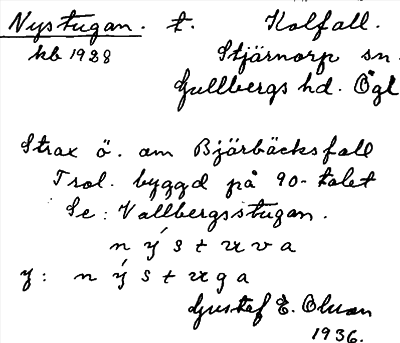 Nystugan. t. Kolfall.
kb 1928 Stjärnorp sn.
Gullbergs hd. Ögl
Strax ö. om Bjärbäcksfall
Trol. byggd på 90-talet
Se: Vallbergsstugan.
n ý s t u v a
y: n ý s t u g a
Gustaf E. Olsson
1936.